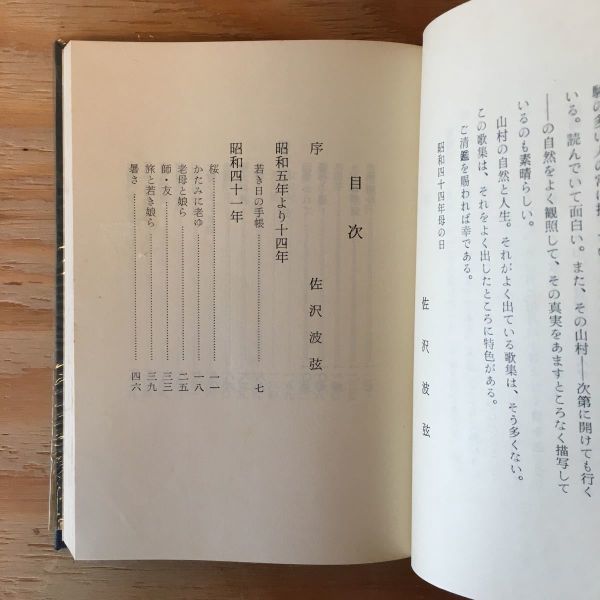 いる。読んでいて面白い。また、その山村――次第に開けても行く
――の自然をよく観照して、その真実をあますところなく描写して
いるのも素晴らしい。
山村の自然と人生。それがよく出ている歌集は、そう多くない。
この歌集は、それをよく出したところに特色がある。
ご清鑑を賜われば幸である。
昭和四十四年母の日
佐沢波弦
目次
序 佐沢波弦
昭和五年より十四年
若き日の手帳…………七
昭和四十一年
桜…………一一
かたみに老ゆ…………一八
老母と娘ら…………二五
師・友…………三三
旅と若き娘ら…………三九
暑さ…………四六